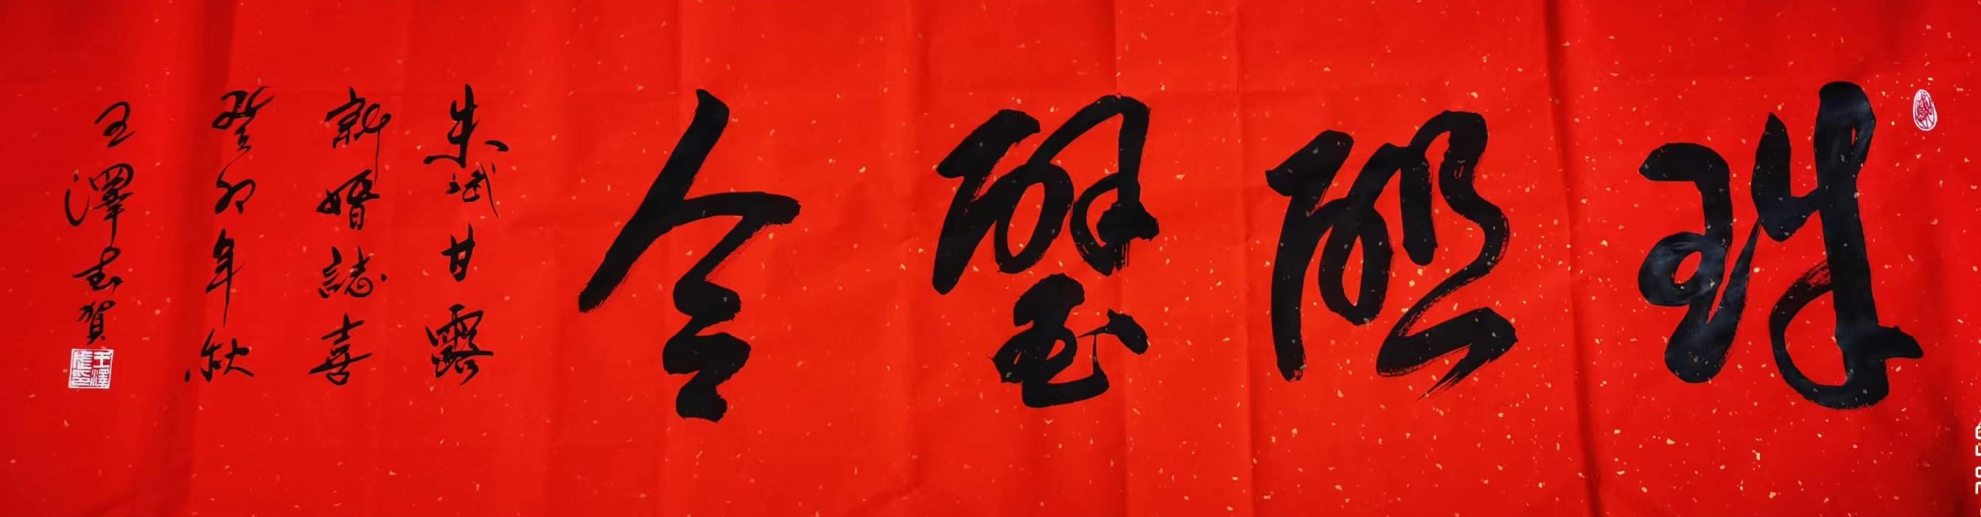 珠聯璧合
朱斌甘露
新婚誌喜
癸卯年秋
王澤書賀